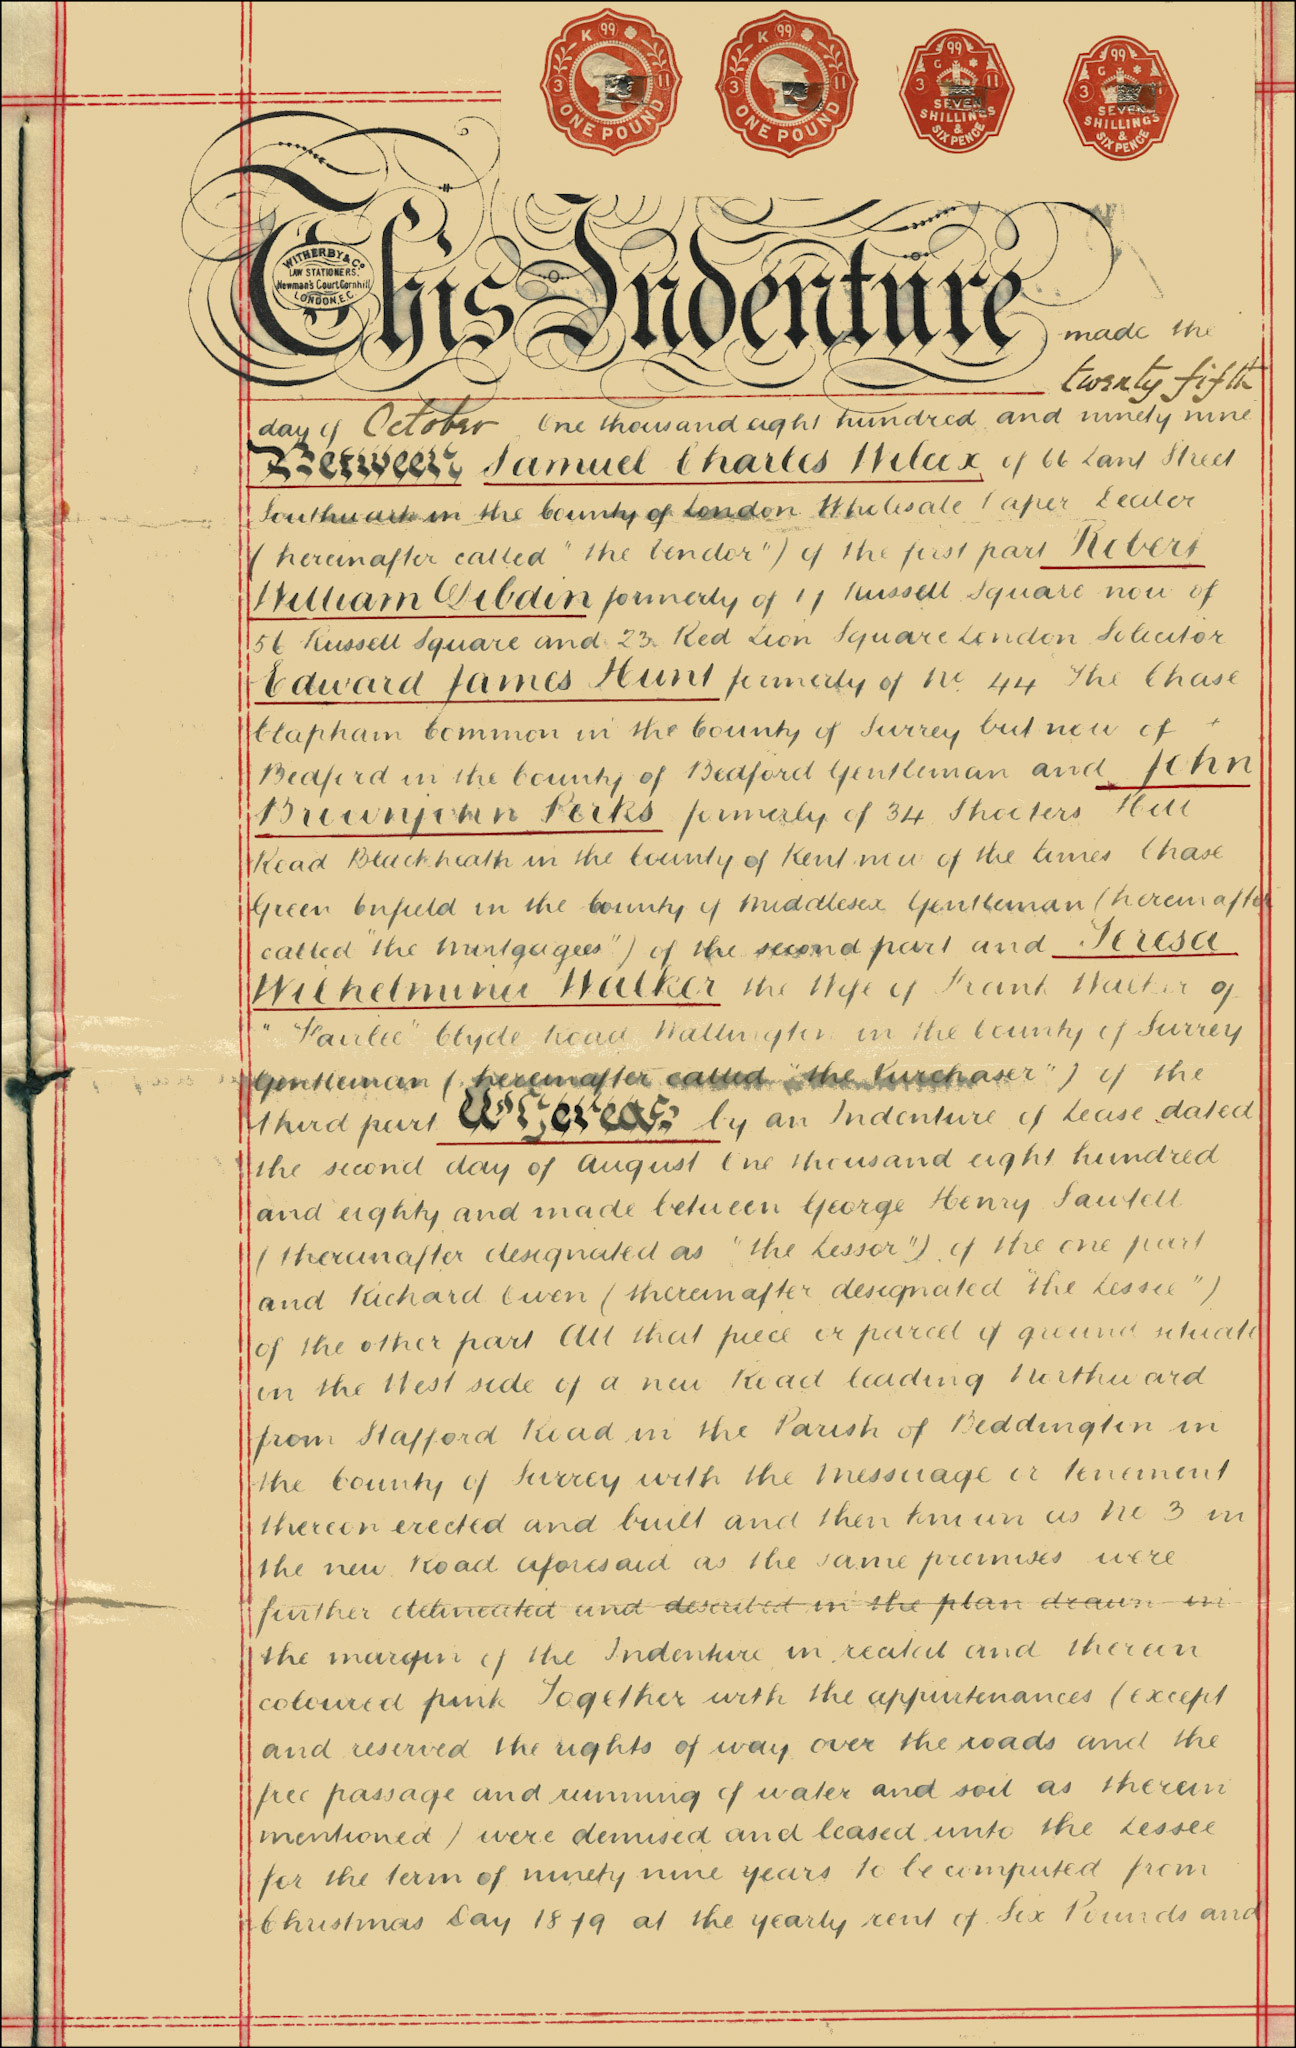 K 99
3 11
ONE POUND
K 99
3 11
ONE POUND
99
G
3 11
SEVEN
SHILLINGS
&
SIX PENCE
99
G
3
SEVEN
SHILLINGS
&
SIX PENCE
WITHERBY & Co
LAW STATIONERS.
Newman's Court Cornhill
LONDON, E.C.
This Indenture made the
twenty fifth
day of October One thousand eight hundred and ninety nine
Between Samuel Charles Wilcox of 66 Lant Street
Southwark in the County of London Wholesale Paper Dealer
(hereinafter called "the Vendor") of the first part Robert
William Dibdin formerly of Russell Square now of
56 Russell Square and 23 Red Lion Square London Solicitor
Edward James Hunt formerly of No. 44 The Chase
Clapham Common in the County of Surrey but now of
Bedford in the County of Bedford Gentleman and John
Brownjohn Perks formerly of 34 Shooters Hill
Road Blackheath in the County of Kent now of the Chase
Green Enfield in the County of Middlesex Gentleman (hereinafter
called "the Mortgagees") of the second part and Teresa
Wilhelmina Walker the Wife of Frank Walker of
Clyde Road Wallington in the County of Surrey
Gentleman (hereinafter called "the Purchaser") of the
third part Whereas by an Indenture of Lease dated
the second day of August One thousand eight hundred
and eighty and made between George Henry Sawtell
(thereinafter designated as "the Lessor") of the one part
and Richard Owen (thereinafter designated "the Lessee")
of the other part All that piece or parcel of ground situate
on the West side of a new Road leading Northward
from Stafford Road in the Parish of Beddington in
the County of Surrey with the messuage or tenement
thereon erected and built and then known as No 3 in
the new Road aforesaid as the same premises were
further delineated and described in the plan drawn in
the margin of the Indenture in recital and therein
coloured pink Together with the appurtenances (except
and reserved the rights of way over the roads and the
free passage and running of water and soil as therein
mentioned) were demised and leased unto the Lessee
for the term of ninety nine years to be computed from
Christmas Day 1879 at the yearly rent of Six Pounds and